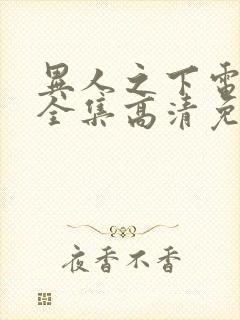 異人之下電
全集高清免
夜香不香